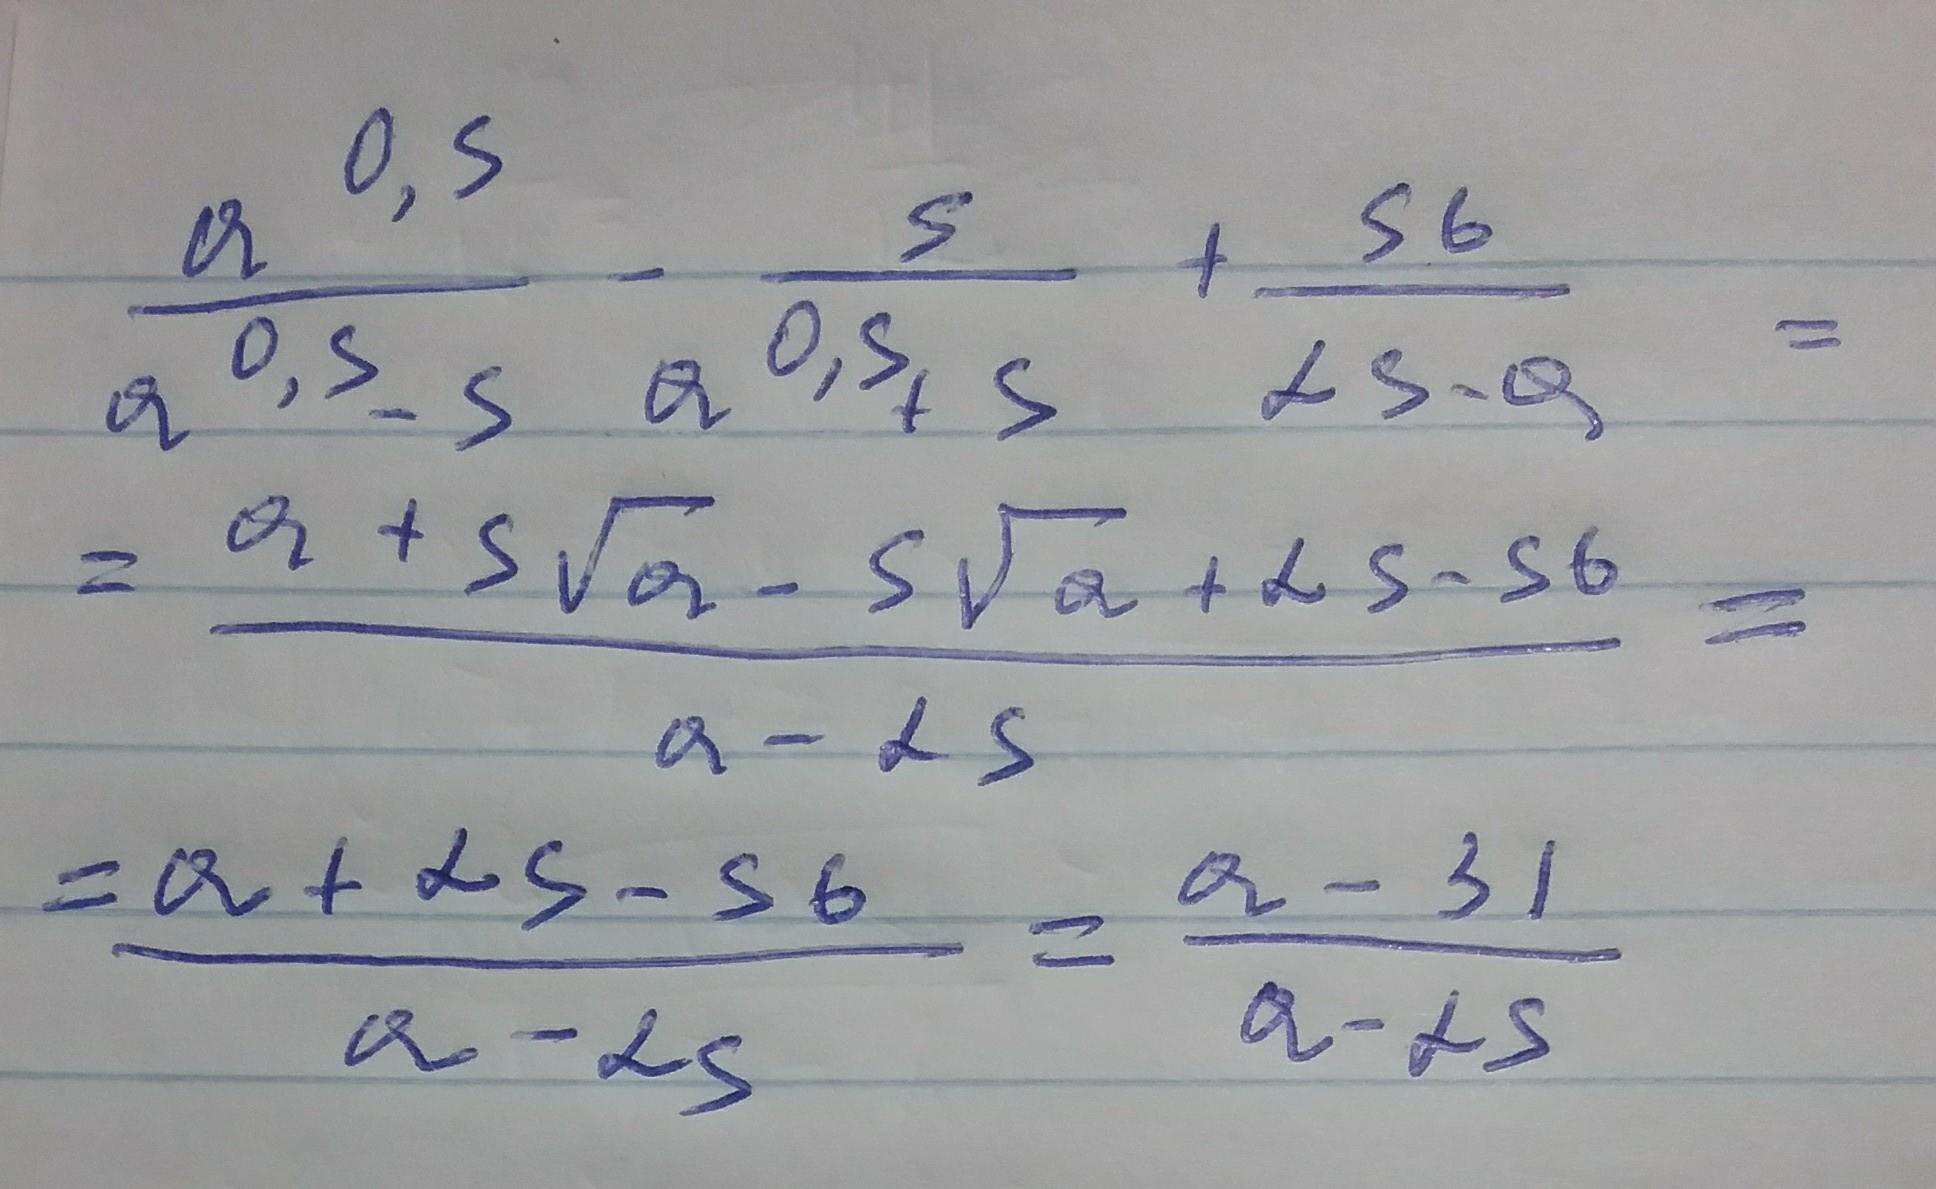 a^{0,5}/(a^{0,5} - 5) - 5/(a^{0,5} + 5) + 56/(25 - a) =
= (a + 5√a - 5√a + 25 - 56)/(a - 25) =
= (a + 25 - 56)/(a - 25) = (a - 31)/(a - 25)